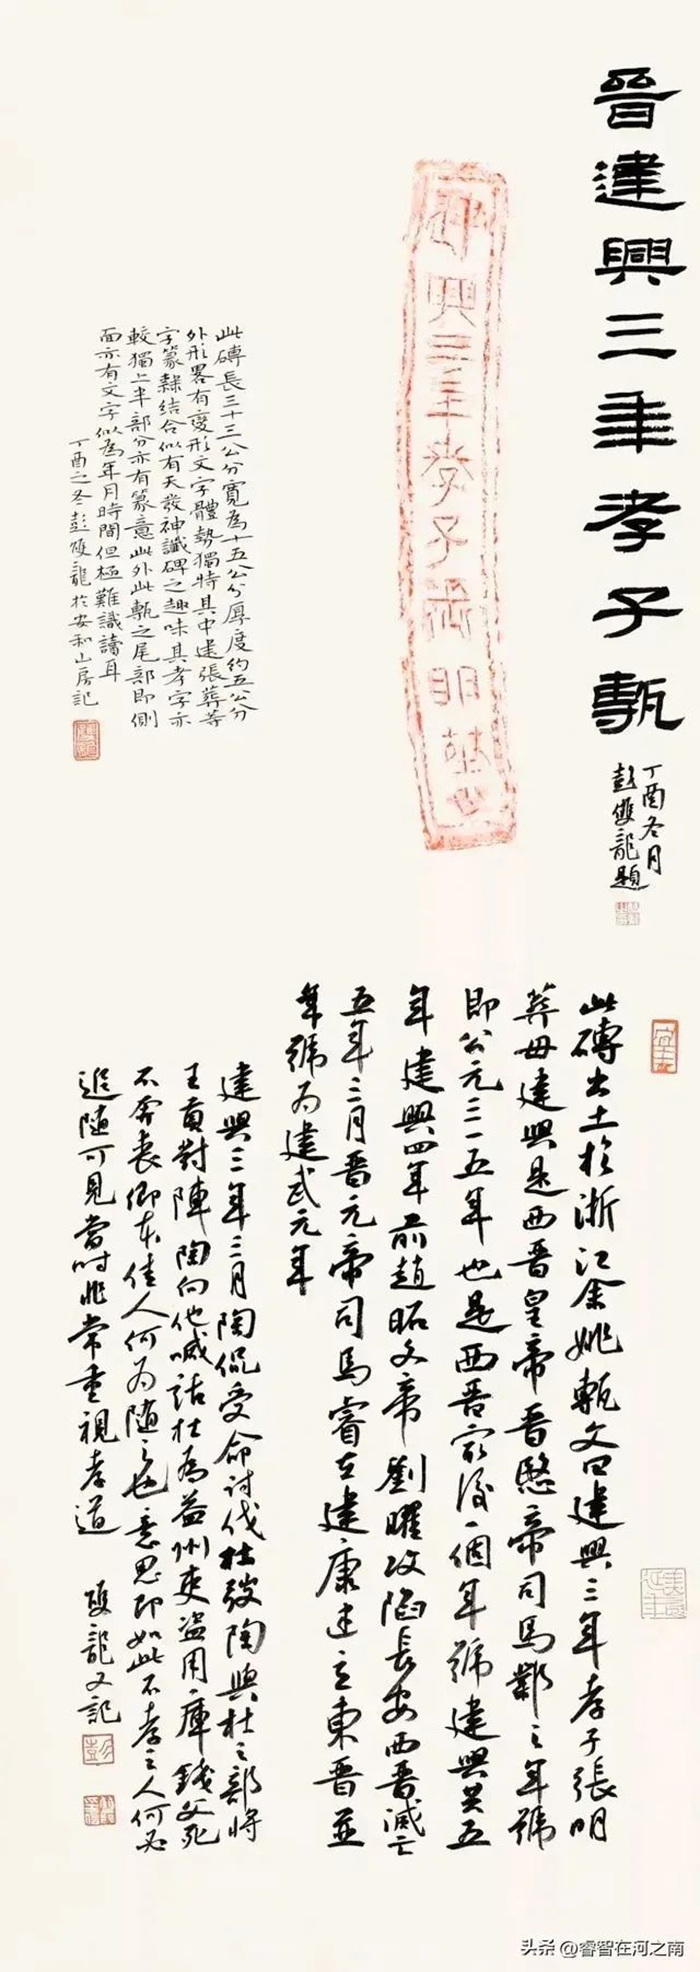 晉建興三年孝子甎
丁酉冬月
彭雙龍題
建興三年孝子張明葬母
此磚長三十三公分寬為十五公分厚度約五公分
外形畧有變形文字體勢獨特其中建張葬等
字篆隸結合似有天發神讖碑之趣味其孝字亦
較獨上半部分亦有篆意此外此甎之尾部即側
面亦有文字似為年月時間但極難識讀耳
丁酉之冬彭雙龍於安和山房記
此磚出土於浙江余姚甎文曰建興三年孝子張明
葬母建興是西晉皇帝晉愍帝司馬鄴之年號
即公元三一五年也是西晋最後一個年號建興共五
年建興四年前趙昭文帝劉曜攻陷長安西晋滅亡
五年三月晋元帝司馬睿在建康建立東晋並
年號為建武元年
建興三年三月陶侃受命討伐杜弢陶與杜之部將
王貢對陣陶向他喊話杜為益州吏盜用庫錢父死
不奔喪卿本佳人何為隨之也意思即如此不孝之人何必
追隨可見當時非常重視孝道
雙龍又記
头条 @睿智在河之南